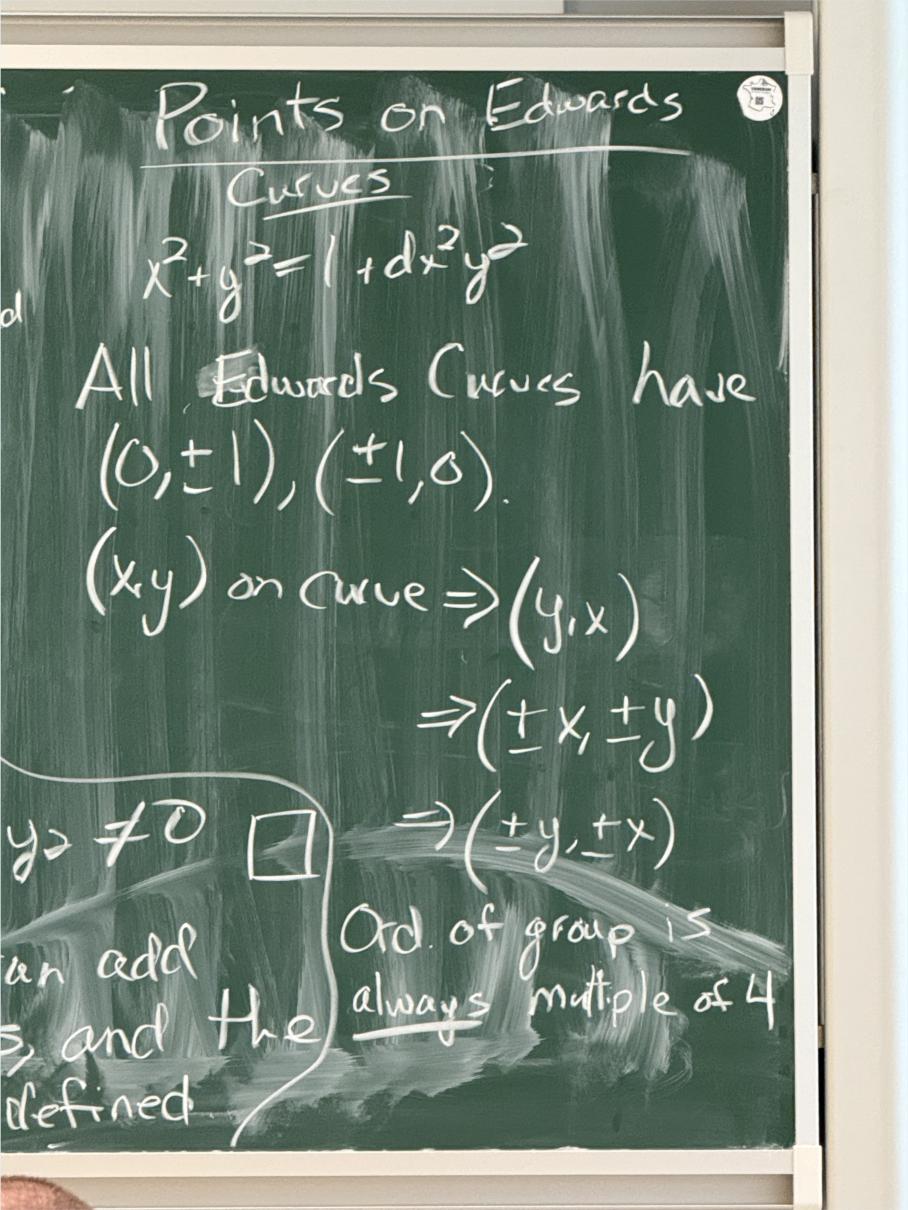 Points on Edwards
Curves
x²+y²=1+dx²y²
d
All Edwards Curves have
(0,±1),(±1,0).
(x,y) on curve ⇒(y,x)
⇒(±x,±y)
⇒(±y,±x)
y₂ ≠0 □
an add
s, and the
defined
Ord. of group is
always multiple of 4